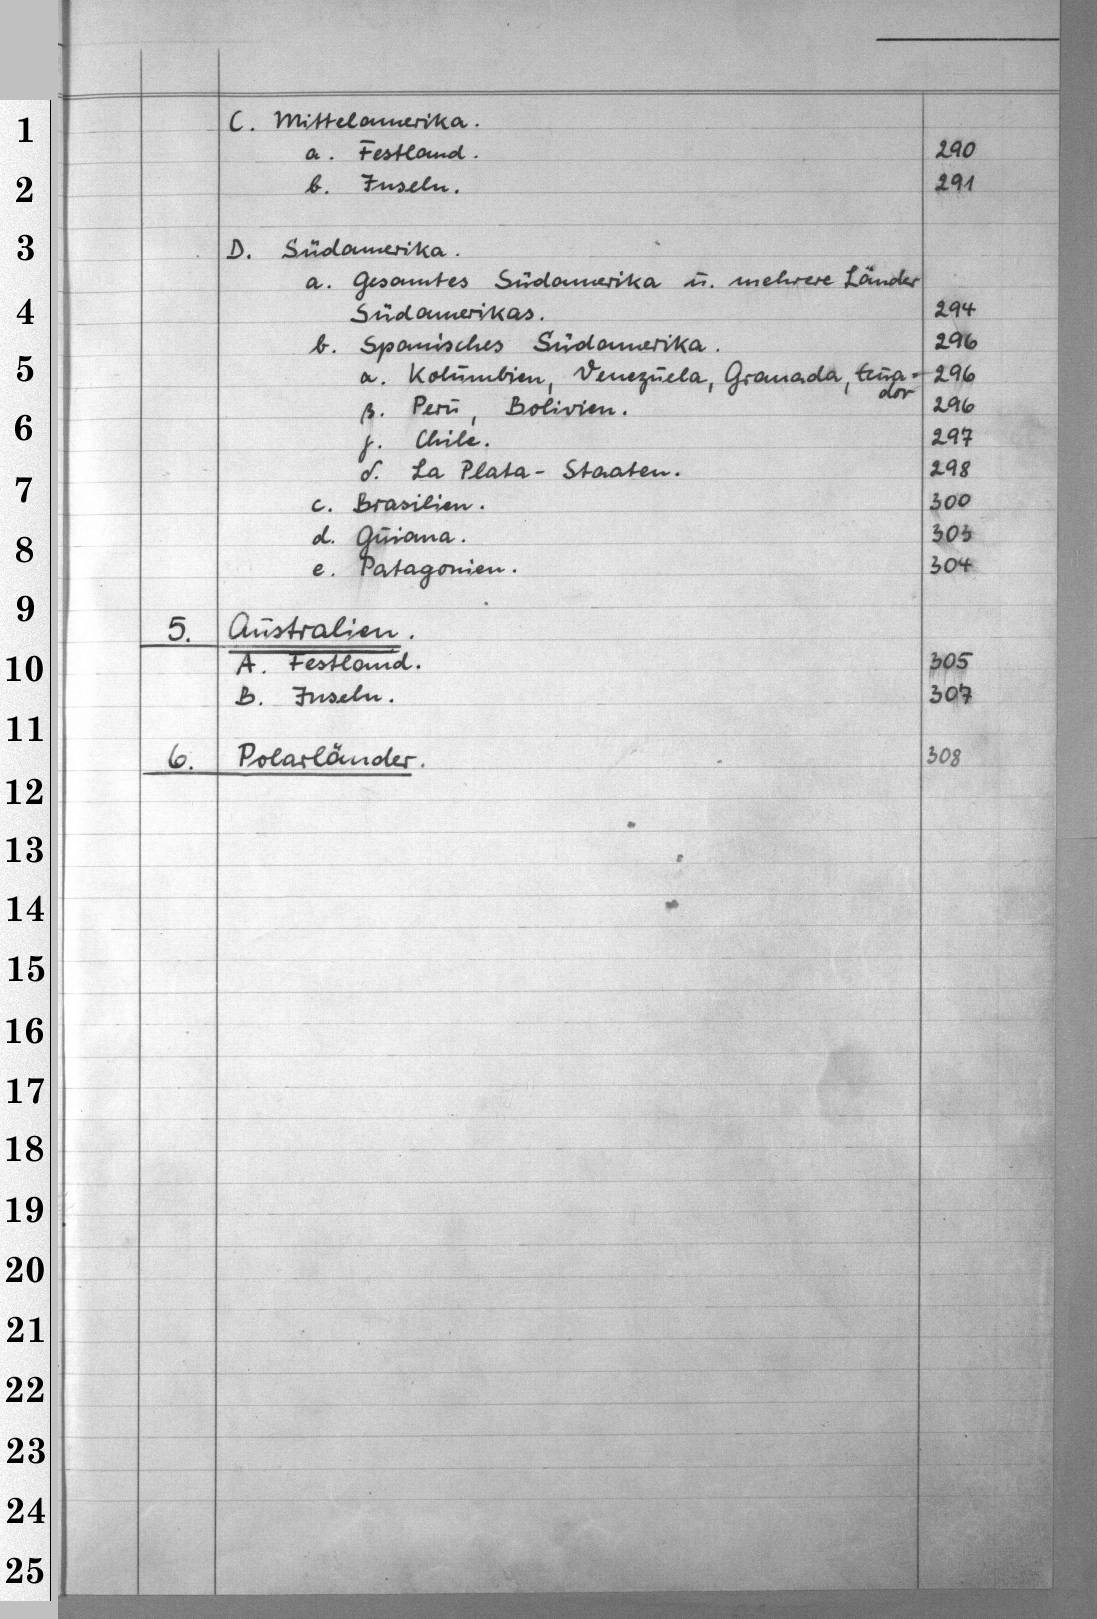 C. Mittelamerika.
a. Festland. 290
b. Inseln. 291
D. Südamerika.
a. Gesamtes Südamerika ū. mehrere Länder
Südamerikas. 294
b. Spanisches Südamerika. 296
α. Kolūmbien, Venezūela, Granada, Ecūa- 296
dor
β. Perū, Bolivien. 296
γ. Chile. 297
δ. La Plata-Staaten. 298
c. Brasilien. 300
d. Gūiana. 303
e. Patagonien. 304
5. Aūstralien.
A. Festland. 305
B. Inseln. 307
6. Polarländer. 308
1
2
3
4
5
6
7
8
9
10
11
12
13
14
15
16
17
18
19
20
21
22
23
24
25